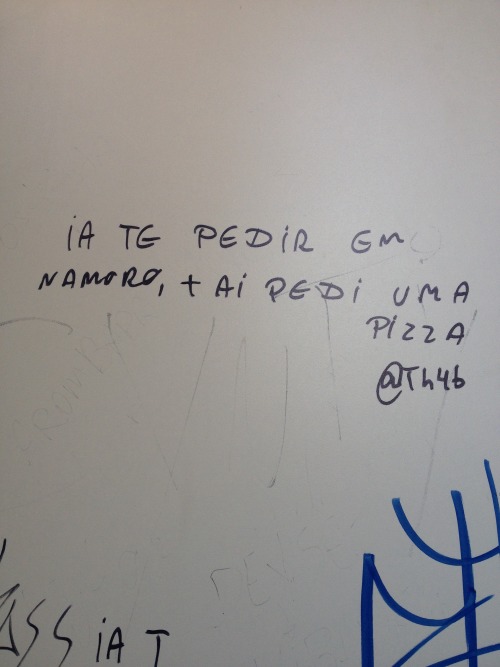 iA TE PEDiR EM
NAMORO, + Ai PEDi UMA
PizzA
@Th4b
iA T